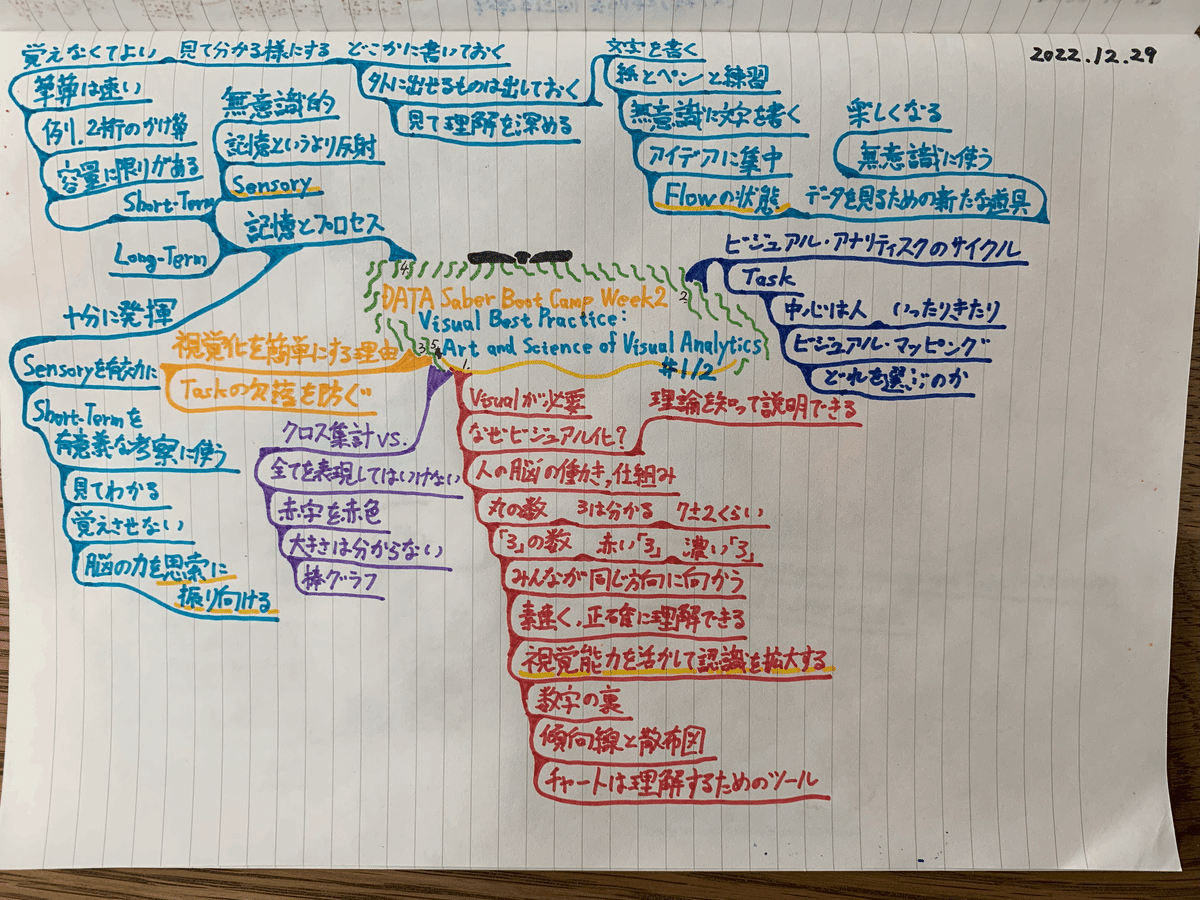 2022.12.29
DATA Saber Boot Camp Week2
Visual Best Practice:
Art and Science of Visual Analytics
#1/2
1.
Visualが必要
なぜビジュアル化？
理論を知って説明できる
人の脳の働き,仕組み
丸の数 3は分かる 7±2くらい
「3」の数 赤い「3」 濃い「3」
みんなが同じ方向に向かう
素速く,正確に理解できる
視覚能力を活かして認識を拡大する
数字の裏
傾向線と散布図
チャートは理解するためのツール
2
ビジュアル・アナリティスクのサイクル
Task
中心は人 いったりきたり
ビジュアル・マッピング
どれを選ぶのか
3
視覚化を簡単にする理由
Taskの欠落を防ぐ
4
記憶とプロセス
無意識的
記憶というより反射
Sensory
Short-Term
覚えなくてよい 見て分かる様にする どこかに書いておく
筆算は速い
例. 2桁のかけ算
容量に限りがある
外に出せるものは出しておく
見て理解を深める
文字を書く
紙とペンと練習
無意識に文字を書く
アイデアに集中
Flowの状態
データを見るための新たな道具
楽しくなる
無意識に使う
Long-Term
十分に発揮
Sensoryを有効に
Short-Termを
有意義な考察に使う
見てわかる
覚えさせない
脳の力を思索に
振り向ける
5
クロス集計vs.
全てを表現してはいけない
赤字を赤色
大きさは分からない
棒グラフ